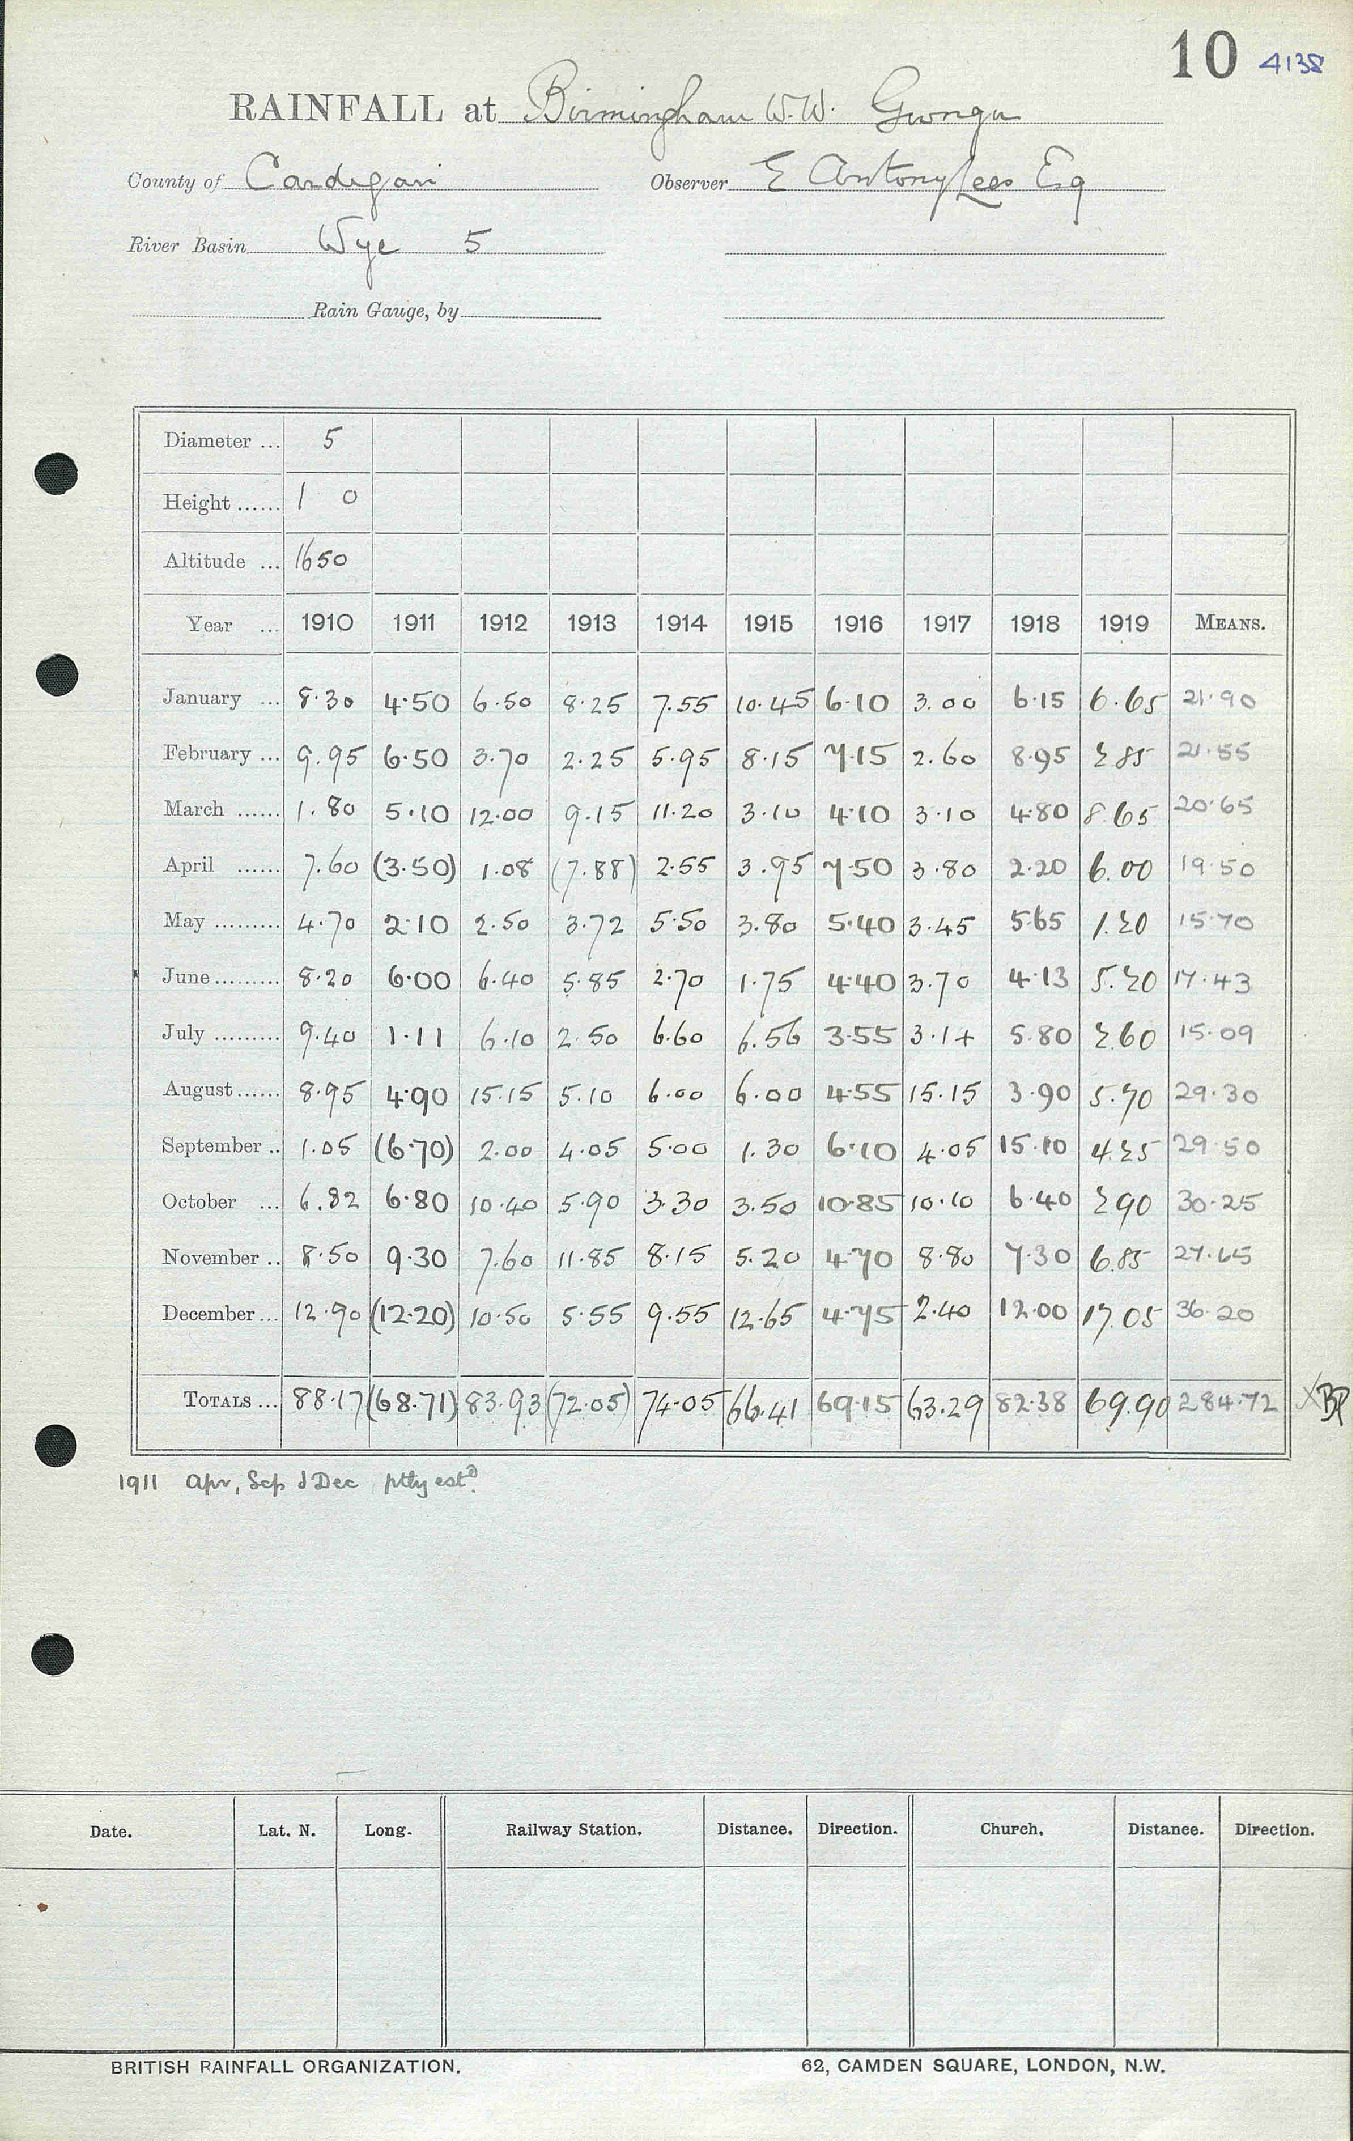 10 4138
RAINFALL at Birmingham W.W. Gwngu
County of Cardigan Observer E Antony Lees Esq
River Basin Wye 5
Rain Gauge, by
Diameter ... 5
Height ...... 1 0
Altitude ... 1650
Year ... 1910 1911 1912 1913 1914 1915 1916 1917 1918 1919 MEANS.
January ... 8.30 4.50 6.50 8.25 7.55 10.45 6.10 3.00 6.15 6.65 21.90
February ... 9.95 6.50 3.70 2.25 5.95 8.15 7.15 2.60 8.95 2.85 21.55
March ...... 1.80 5.10 12.00 9.15 11.20 3.10 4.10 3.10 4.80 8.65 20.65
April ...... 7.60 (3.50) 1.08 (7.88) 2.55 3.95 7.50 3.80 2.20 6.00 19.50
May ......... 4.70 2.10 2.50 3.72 5.50 3.80 5.40 3.45 5.65 1.20 15.70
June ......... 8.20 6.00 6.40 5.85 2.70 1.75 4.40 3.70 4.13 5.20 17.43
July ......... 9.40 1.11 6.10 2.50 6.60 6.56 3.55 3.14 5.80 2.60 15.09
August ...... 8.95 4.90 15.15 5.10 6.00 6.00 4.55 15.15 3.90 5.70 29.30
September .. 1.05 (6.70) 2.00 4.05 5.00 1.30 6.10 4.05 15.10 4.25 29.50
October ... 6.82 6.80 10.40 5.90 3.30 3.50 10.85 10.10 6.40 2.90 30.25
November .. 8.50 9.30 7.60 11.85 8.15 5.20 4.70 8.80 7.30 6.85 27.65
December ... 12.90 (12.20) 10.50 5.55 9.55 12.65 4.75 2.40 12.00 17.05 36.20
TOTALS ... 88.17 (68.71) 83.93 (72.05) 74.05 66.41 69.15 63.29 82.38 69.90 284.72 X BP
1911 Apr, Sep & Dec ptly estd.
Date. Lat. N. Long. Railway Station. Distance. Direction. Church. Distance. Direction.
BRITISH RAINFALL ORGANIZATION. 62, CAMDEN SQUARE, LONDON, N.W.